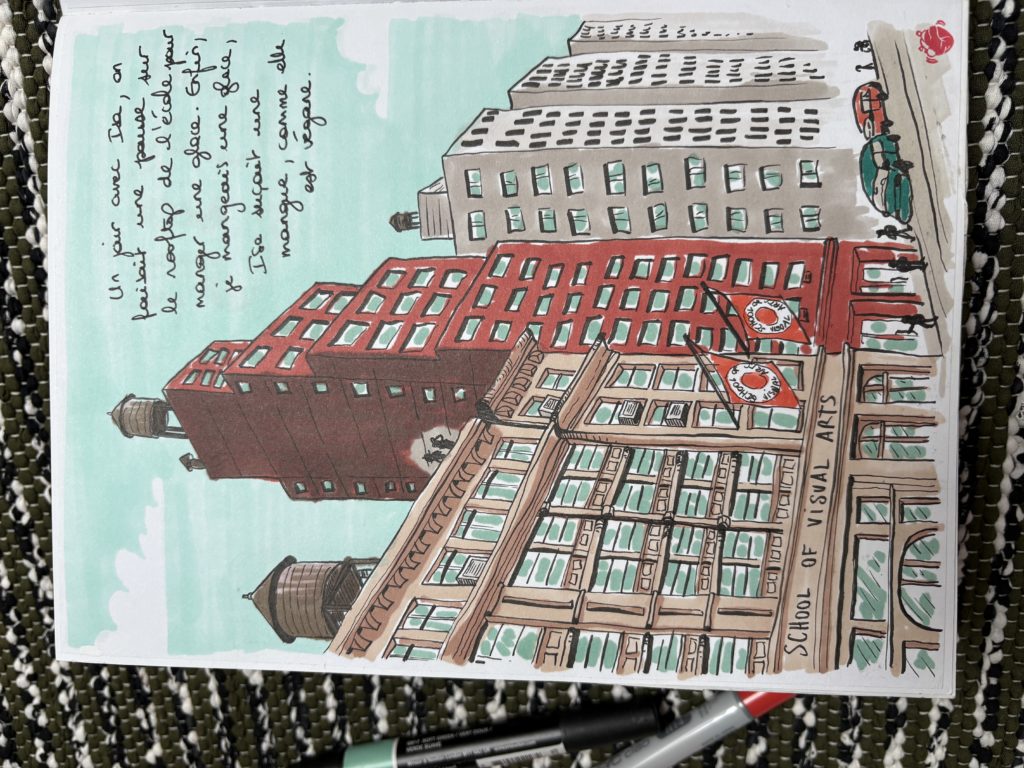 Un jour avec Isa, on
faisait une pause sur
le rooftop de l'école pour
manger une glace. Enfin,
je mangeais une glace,
Isa suçait une
mangue, comme elle
est vegane.
SCHOOL OF VISUAL ARTS
SCHOOL OF VISUAL ARTS
SCHOOL OF VISUAL ARTS